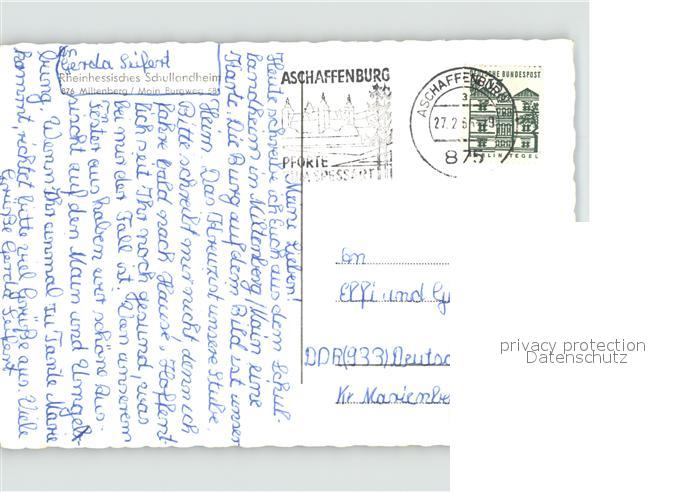 Gerda Seifert
Rheinhessisches Schullandheim
876 Miltenberg / Main Burgweg 58
ASCHAFFENBURG
PFORTE
ZUM SPESSART
ASCHAFFENBURG
27.2.6
875
DEUTSCHE BUNDESPOST
BERLIN-TEGEL
Meine Lieben!
Heute schreibe ich Euch aus dem Schul-
landheim in Miltenberg/Main eine
Karte. Die Burg auf dem Bild ist unser
Heim. Das Kreuz ist unsere Stube.
Bitte schreibt mir nicht denn ich
fahre bald nach Hause. Hoffent-
lich seit Ihr noch gesund, was
bei mir der Fall ist. Von unserem
Fenster aus haben wir schöne Aus-
sicht auf den Main und Umgeb-
ung. Wenn Ihr einmal zu Tante Marie
kommt, richtet bitte viel Grüße aus. Viele
Grüße Gerda Seifert
An
Effi und
DDR (933) Deutsc
Kr. Marienbe
privacy protection
Datenschutz